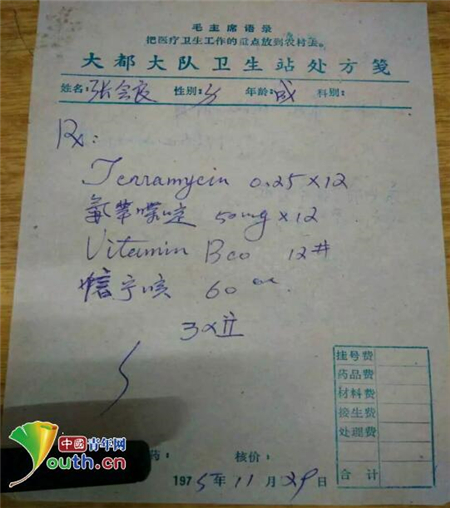 毛主席语录
把医疗卫生工作的重点放到农村去。
大都大队卫生站处方笺
姓名: 张会良 性别: 年龄: 成 科别:
Rx:
Terramycin 0.25×12
氨苯喋啶 50mg×12
Vitamin Bco 12#
60
3×
挂号费
药品费
材料费
接生费
处理费
合计
药: 核价:
1975年11月29日
中國青年网
youth.cn